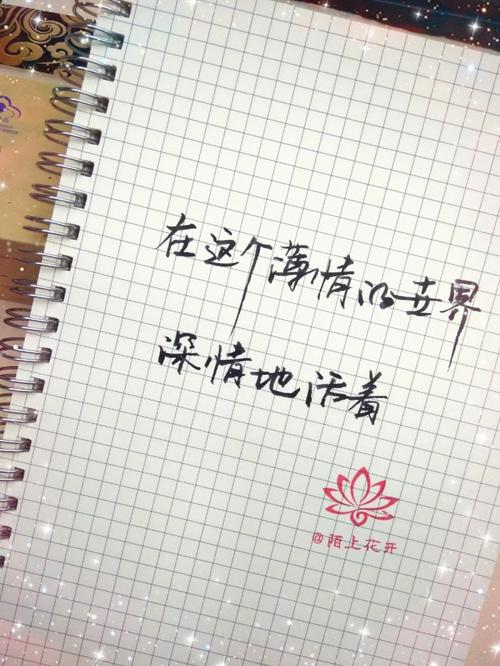 在这个薄情的世界
深情地活着
@陌上花开